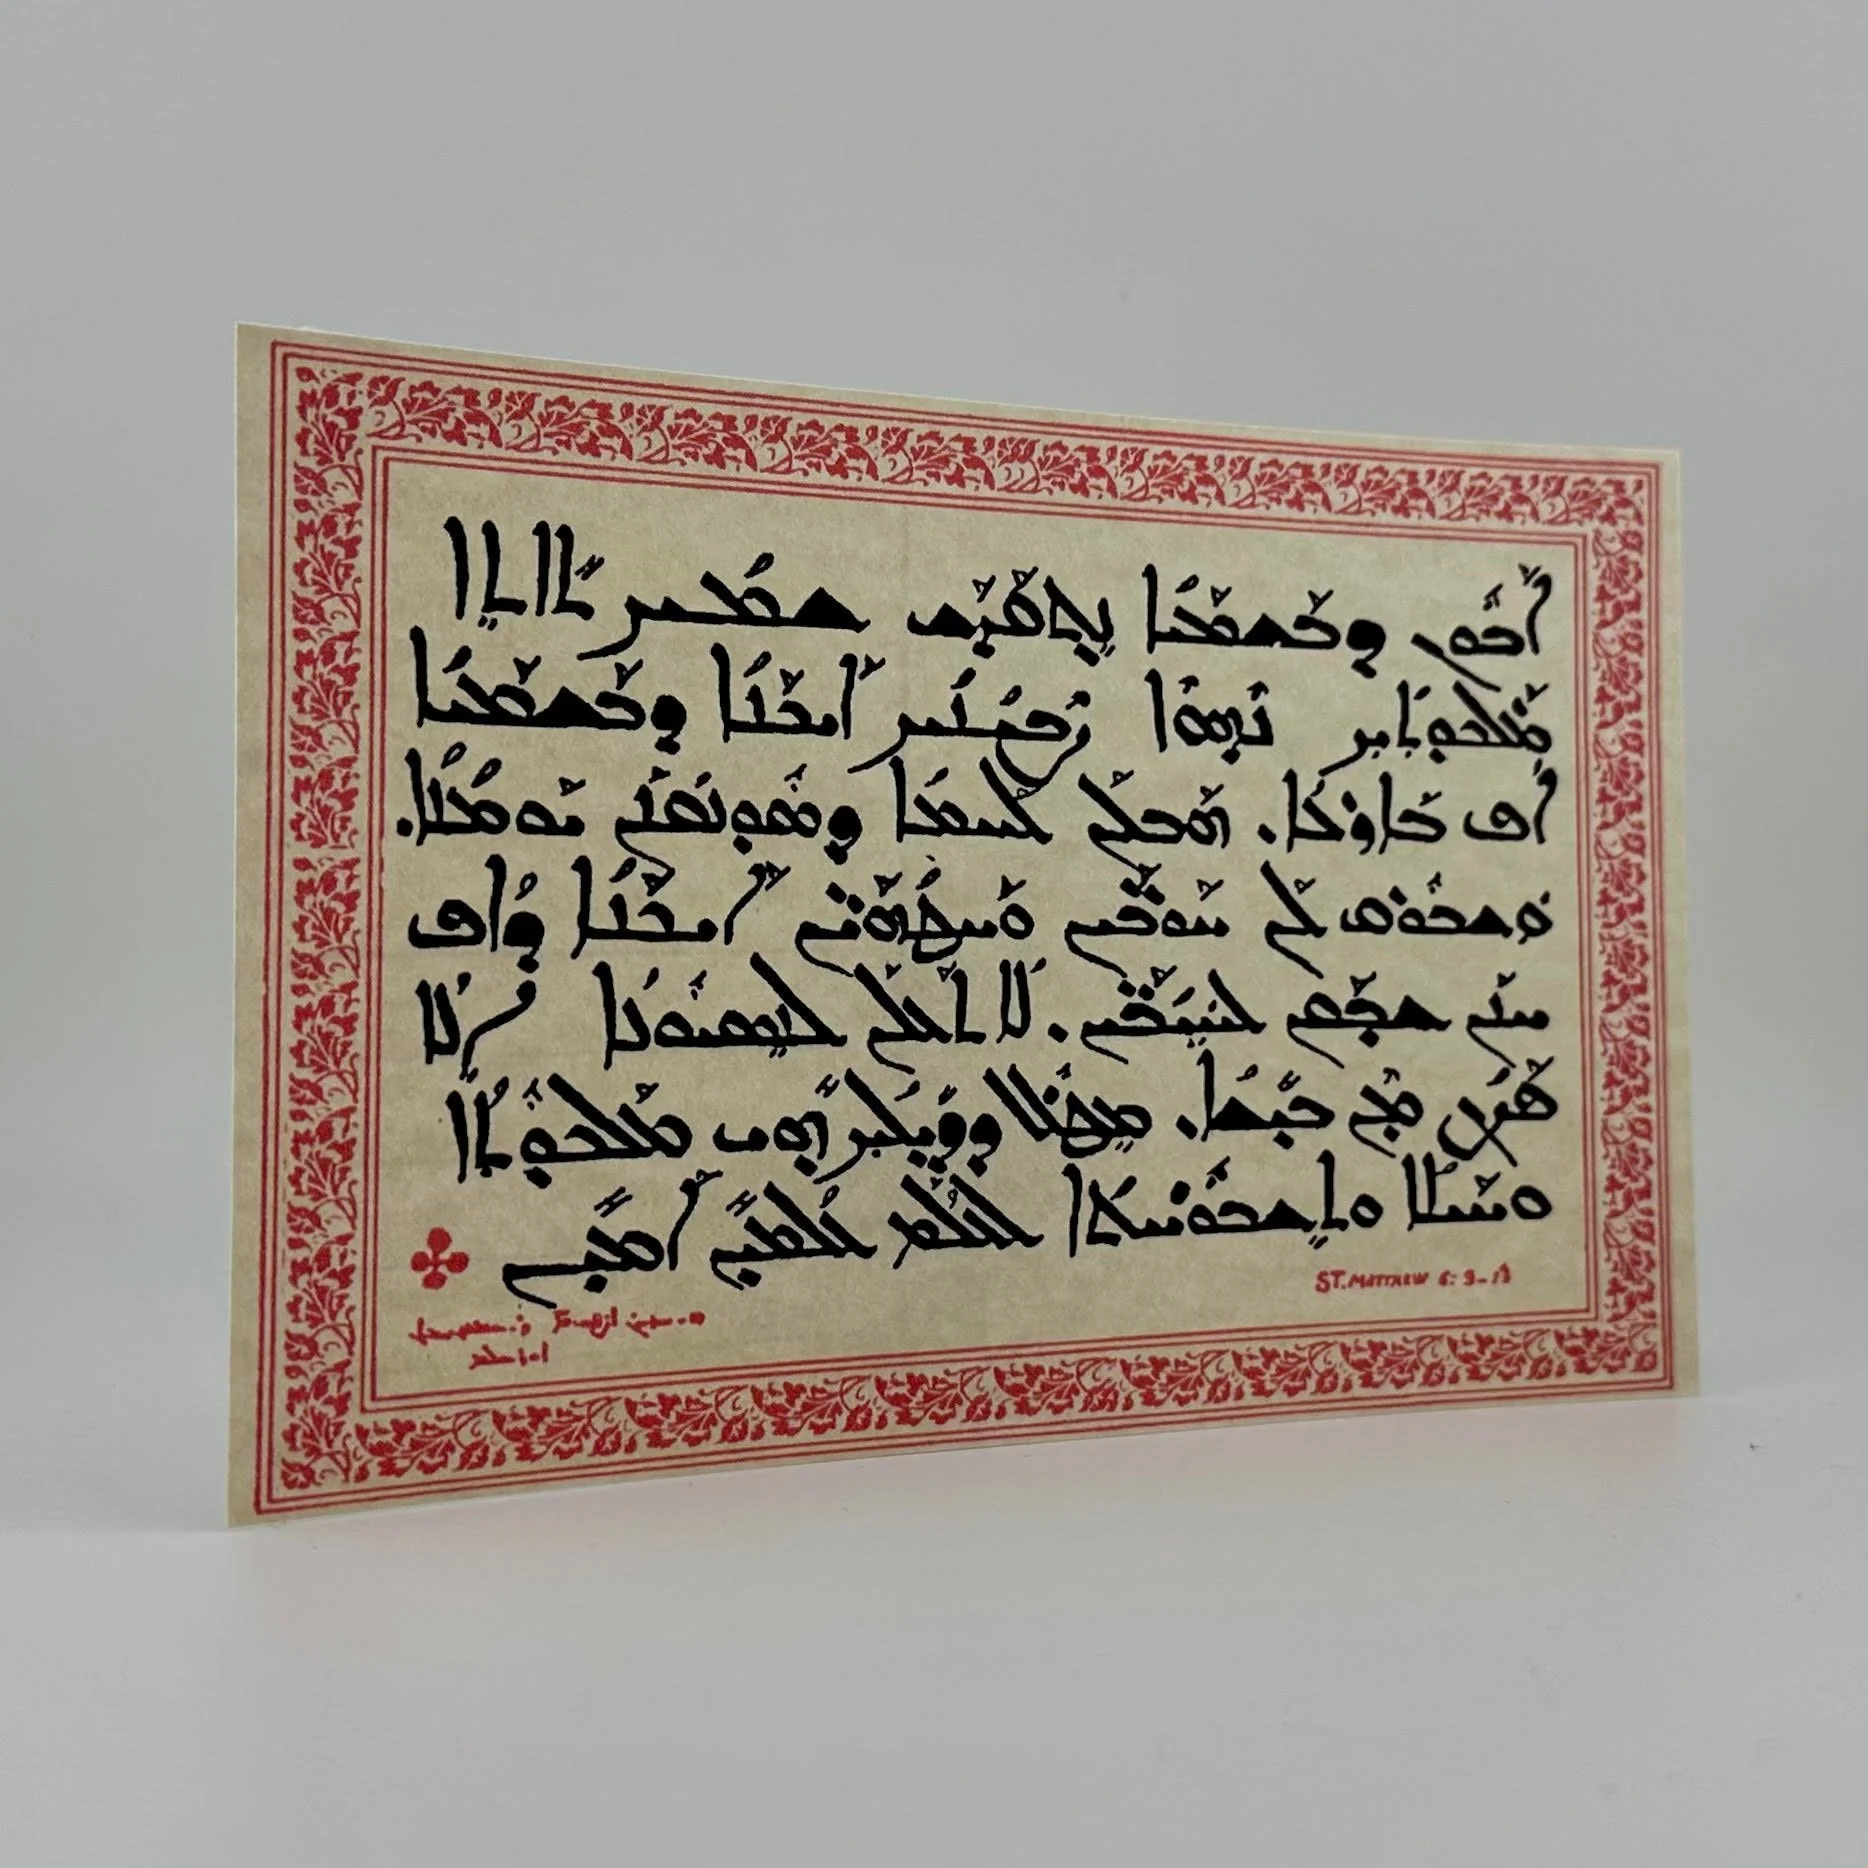 ܐܒܘܢ ܕܒܫܡܝܐ ܢܬܩܕܫ ܫܡܟ ܬܐܬܐ
ܡܠܟܘܬܟ ܢܗܘܐ ܨܒܝܢܟ ܐܝܟܢܐ ܕܒܫܡܝܐ
ܐܦ ܒܐܪܥܐ. ܗܒ ܠܢ ܠܚܡܐ ܕܣܘܢܩܢܢ ܝܘܡܢܐ.
ܘܫܒܘܩ ܠܢ ܚܘܒ̈ܝܢ ܘܚܛܗ̈ܝܢ ܐܝܟܢܐ ܕܐܦ
ܚܢܢ ܫܒܩܢ ܠܚܝ̈ܒܝܢ. ܠܐ ܬܥܠܢ ܠܢܣܝܘܢܐ ܐܠܐ
ܦܨܢ ܡܢ ܒܝܫܐ. ܡܛܠ ܕܕܝܠܟ ܗܝ ܡܠܟܘܬܐ
ܘܚܝܠܐ ܘܬܫܒܘܚܬܐ ܠܥܠܡ ܥܠܡܝܢ ܐܡܝܢ
ST. MATTHEW 6: 9-13